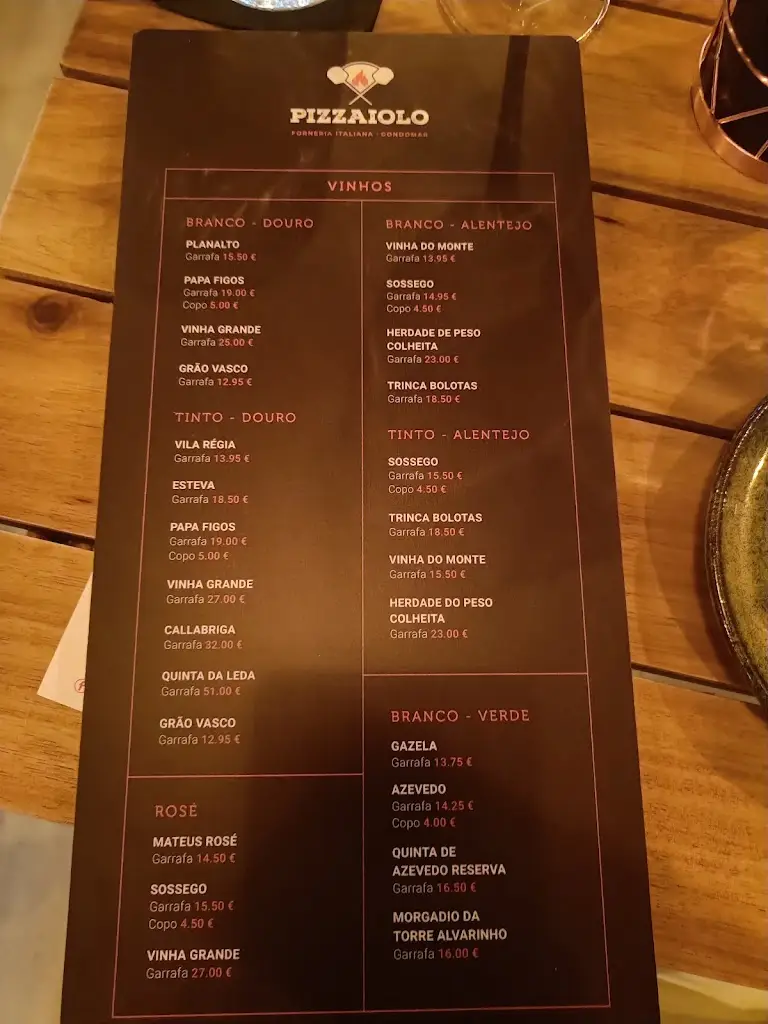 PIZZAIOLO
FORNERIA ITALIANA - GONDOMAR
VINHOS
BRANCO - DOURO
PLANALTO
Garrafa 15.50 €
PAPA FIGOS
Garrafa 19.00 €
Copo 5.00 €
VINHA GRANDE
Garrafa 25.00 €
GRÃO VASCO
Garrafa 12.95 €
TINTO - DOURO
VILA RÉGIA
Garrafa 13.95 €
ESTEVA
Garrafa 18.50 €
PAPA FIGOS
Garrafa 19.00 €
Copo 5.00 €
VINHA GRANDE
Garrafa 27.00 €
CALLABRIGA
Garrafa 32.00 €
QUINTA DA LEDA
Garrafa 51.00 €
GRÃO VASCO
Garrafa 12.95 €
ROSÉ
MATEUS ROSÉ
Garrafa 14.50 €
SOSSEGO
Garrafa 15.50 €
Copo 4.50 €
VINHA GRANDE
Garrafa 27.00 €
BRANCO - ALENTEJO
VINHA DO MONTE
Garrafa 13.95 €
SOSSEGO
Garrafa 14.95 €
Copo 4.50 €
HERDADE DE PESO
COLHEITA
Garrafa 23.00 €
TRINCA BOLOTAS
Garrafa 18.50 €
TINTO - ALENTEJO
SOSSEGO
Garrafa 15.50 €
Copo 4.50 €
TRINCA BOLOTAS
Garrafa 18.50 €
VINHA DO MONTE
Garrafa 15.50 €
HERDADE DO PESO
COLHEITA
Garrafa 23.00 €
BRANCO - VERDE
GAZELA
Garrafa 13.75 €
AZEVEDO
Garrafa 14.25 €
Copo 4.00 €
QUINTA DE
AZEVEDO RESERVA
Garrafa 16.50 €
MORGADIO DA
TORRE ALVARINHO
Garrafa 16.00 €